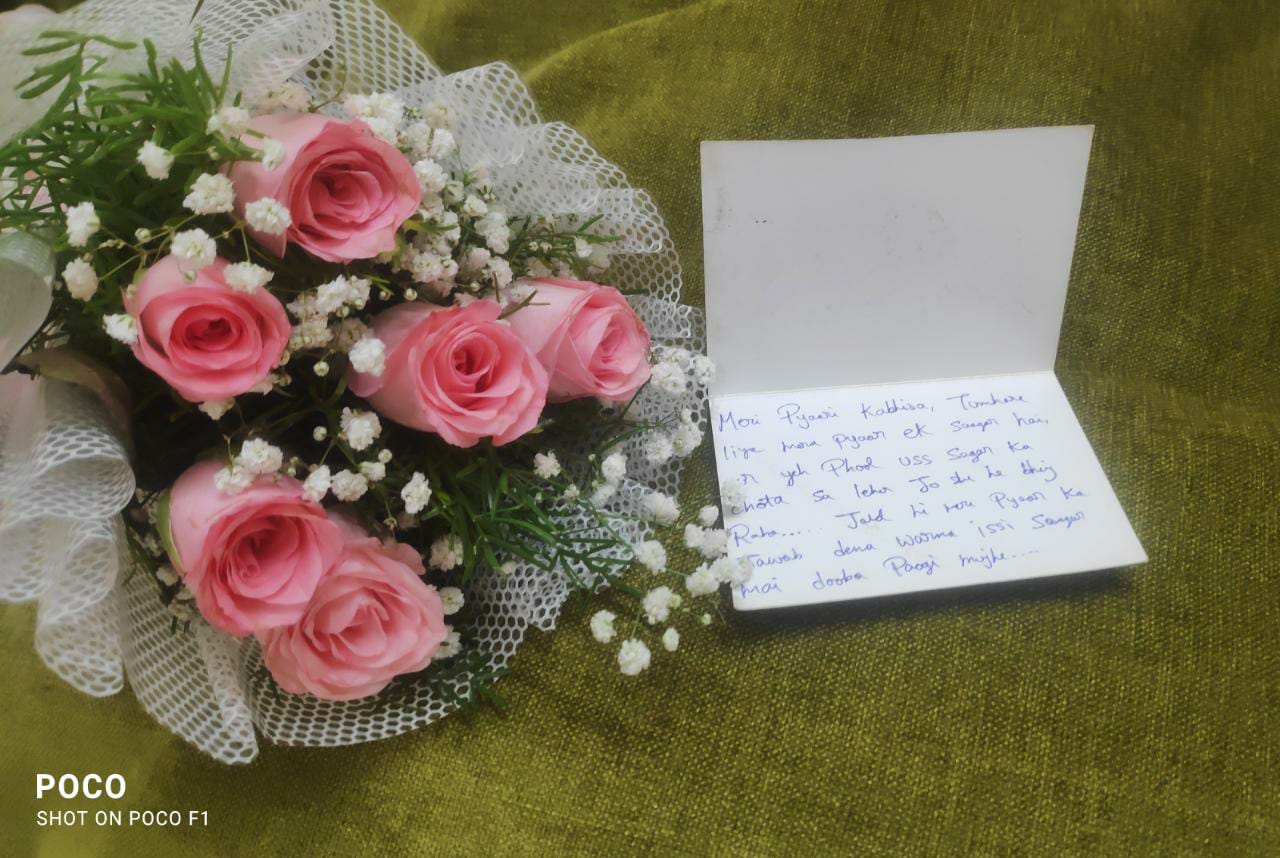 Meri Pyaari Kabhisa, Tumhare
liye mera pyaar ek sagar hai,
yeh Phool uss Sagar ka
chota sa leher Jo
Raha.... Jald hi mere Pyaar ka
Jawab dena warna issi Sagar
mai dooba Paogi mujhe....
POCO
SHOT ON POCO F1